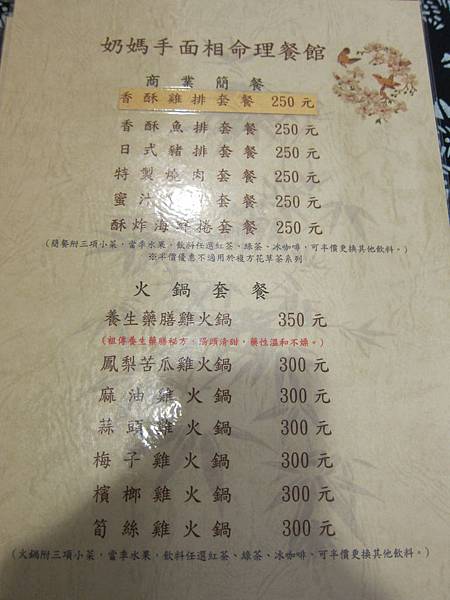 奶媽手面相命理餐館
商業簡餐
香酥雞排套餐 250元
香酥魚排套餐 250元
日式豬排套餐 250元
特製燒肉套餐 250元
蜜汁 套餐 250元
酥炸海 捲套餐 250元
(簡餐附三項小菜,當季水果,飲料任選紅茶、綠茶、冰咖啡,可半價更換其他飲料。)
※半價優惠不適用於複方花草茶系列
火鍋套餐
養生藥膳雞火鍋 350元
(祖傳養生藥膳秘方,湯頭清甜,藥性溫和不燥。)
鳳梨苦瓜雞火鍋 300元
麻油雞火鍋 300元
蒜頭雞火鍋 300元
梅子雞火鍋 300元
檳榔雞火鍋 300元
筍絲雞火鍋 300元
(火鍋附三項小菜,當季水果,飲料任選紅茶、綠茶、冰咖啡、可半價更換其他飲料。)